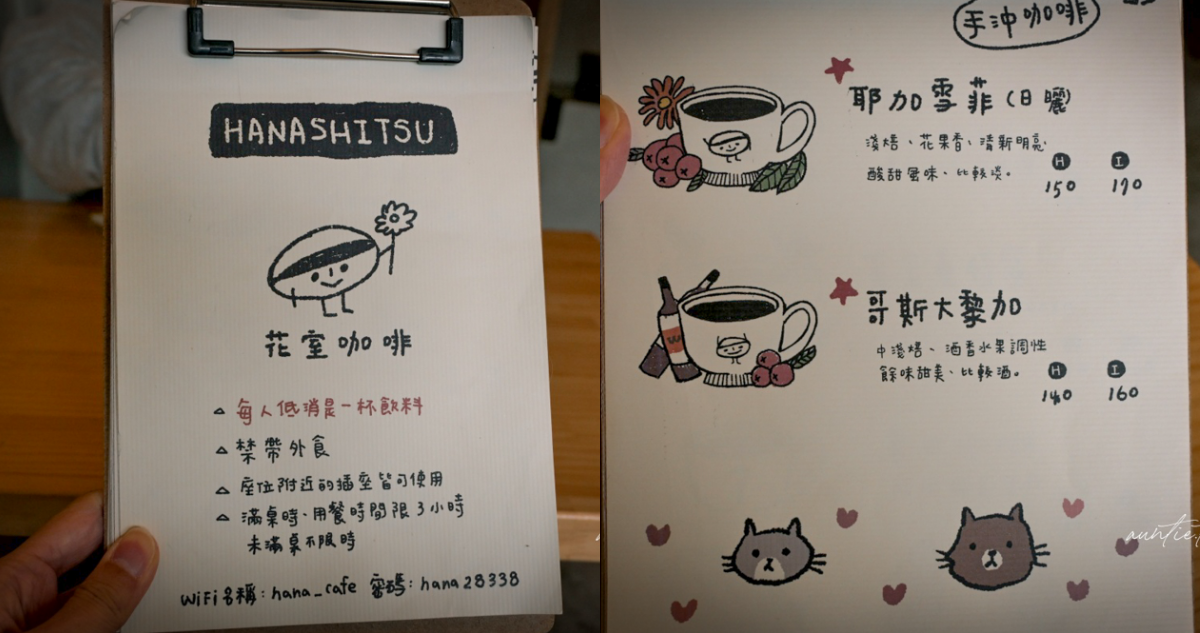 HANASHITSU
花室咖啡
每人低消是一杯飲料
禁帶外食
座位附近的插座皆可使用
滿桌時、用餐時間限3小時
未滿桌不限時
WiFi名稱:hana_cafe 密碼:hana28338
手沖咖啡
耶加雪菲(日曬)
淺焙、花果香、清新明亮
酸甜風味、比較淡。
H I
150 170
哥斯大黎加
中淺焙、酒香水果調性
餘味甜美、比較酒。
H I
140 160
auntie.